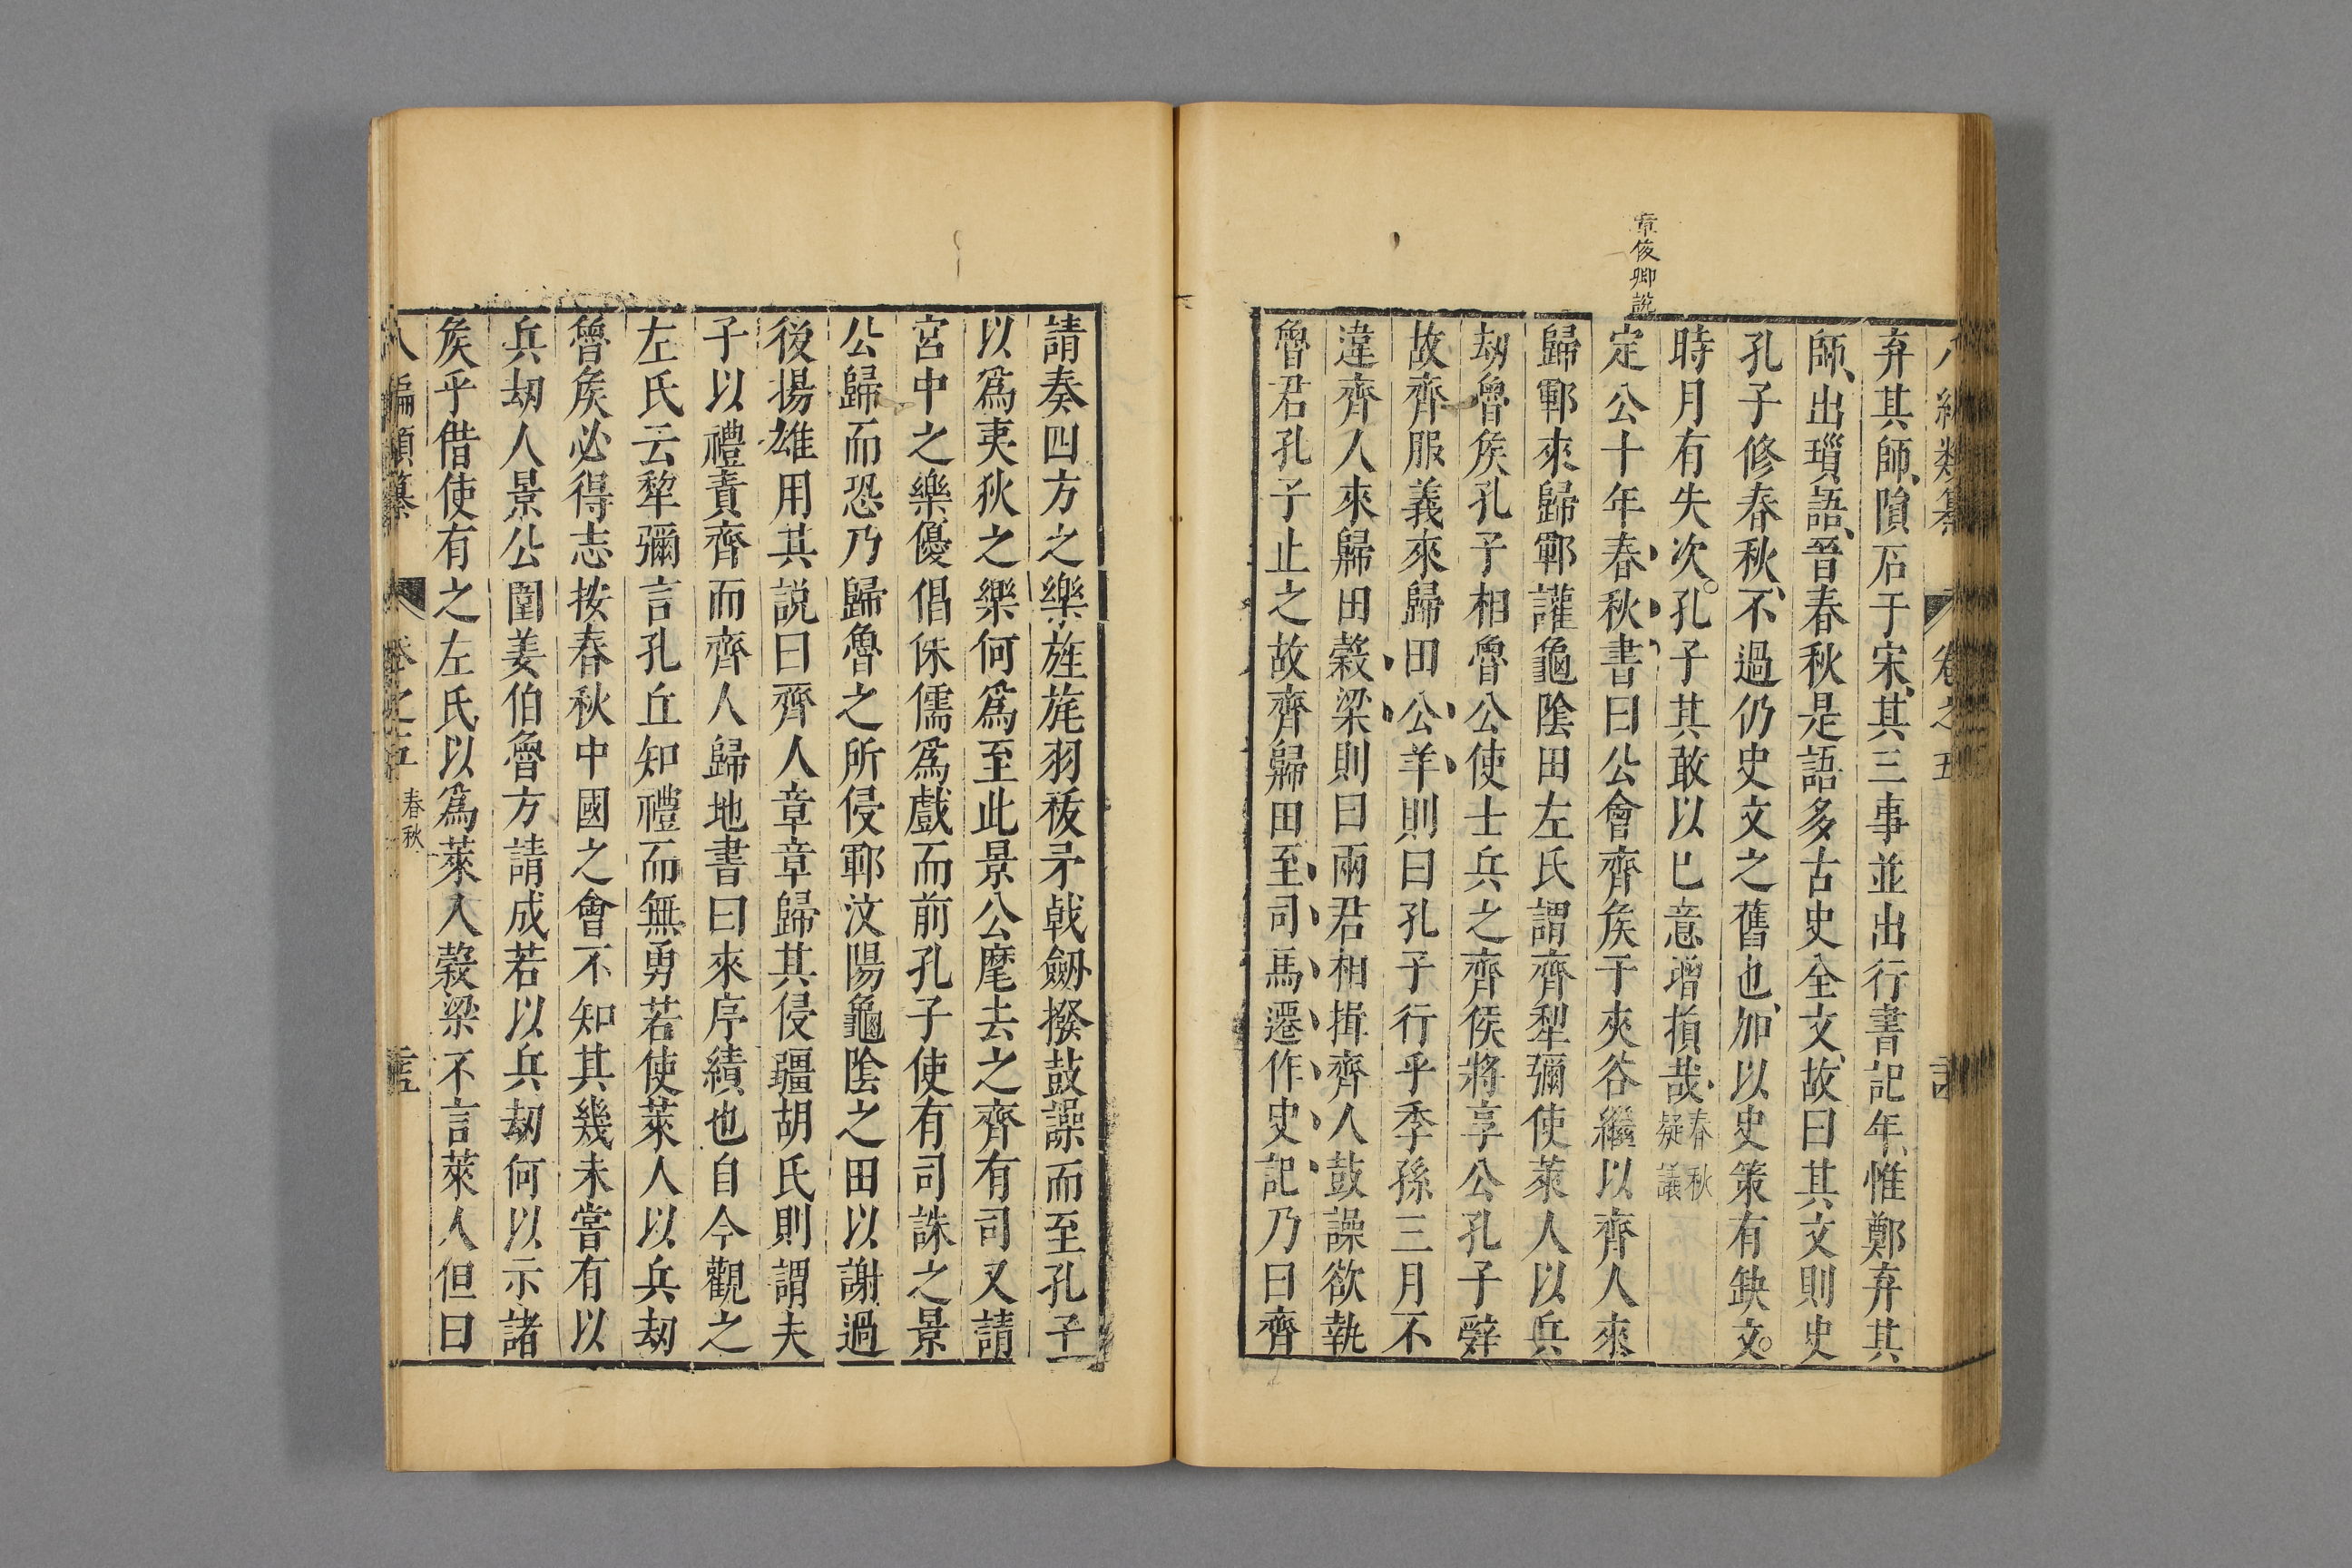 章俊卿説
弃其師、隕石于宋、其三事並出行書記年、惟鄭弃其
師、出瑣語、晉春秋是語多古史全文、故曰其文則史
孔子修春秋、不過仍史文之舊也、加以史策有缺文。
時月有失次。孔子其敢以己意増損哉、春秋疑議
定公十年春秋書曰公會齊矦于夾谷繼以齊人來
歸鄆來歸鄆讙龜陰田左氏謂齊犁彌使萊人以兵
刼魯矦孔子相魯公使士兵之齊侯將享公孔子辭
故齊服義來歸田公羊則曰孔子行乎季孫三月不
違齊人來歸田榖梁則曰兩君相揖齊人鼓譟欲執
魯君孔子止之故齊歸田至司馬遷作史記乃曰齊
請奏四方之樂旌旄羽袚矛戟劒撥鼓譟而至孔子
以爲夷狄之樂何爲至此景公麾去之齊有司又請
宮中之樂優倡侏儒爲戲而前孔子使有司誅之景
公歸而恐乃歸魯之所侵鄆汶陽龜陰之田以謝過
後揚雄用其説曰齊人章章歸其侵疆胡氏則謂夫
子以禮責齊而齊人歸地書曰來序績也自今觀之
左氏云犂彌言孔丘知禮而無勇若使萊人以兵刼
魯矦必得志按春秋中國之會不知其幾未嘗有以
兵刼人景公圍姜伯魯方請成若以兵刼何以示諸
矦乎借使有之左氏以爲萊人榖梁不言萊人但曰
八編類纂 卷之五 春秋